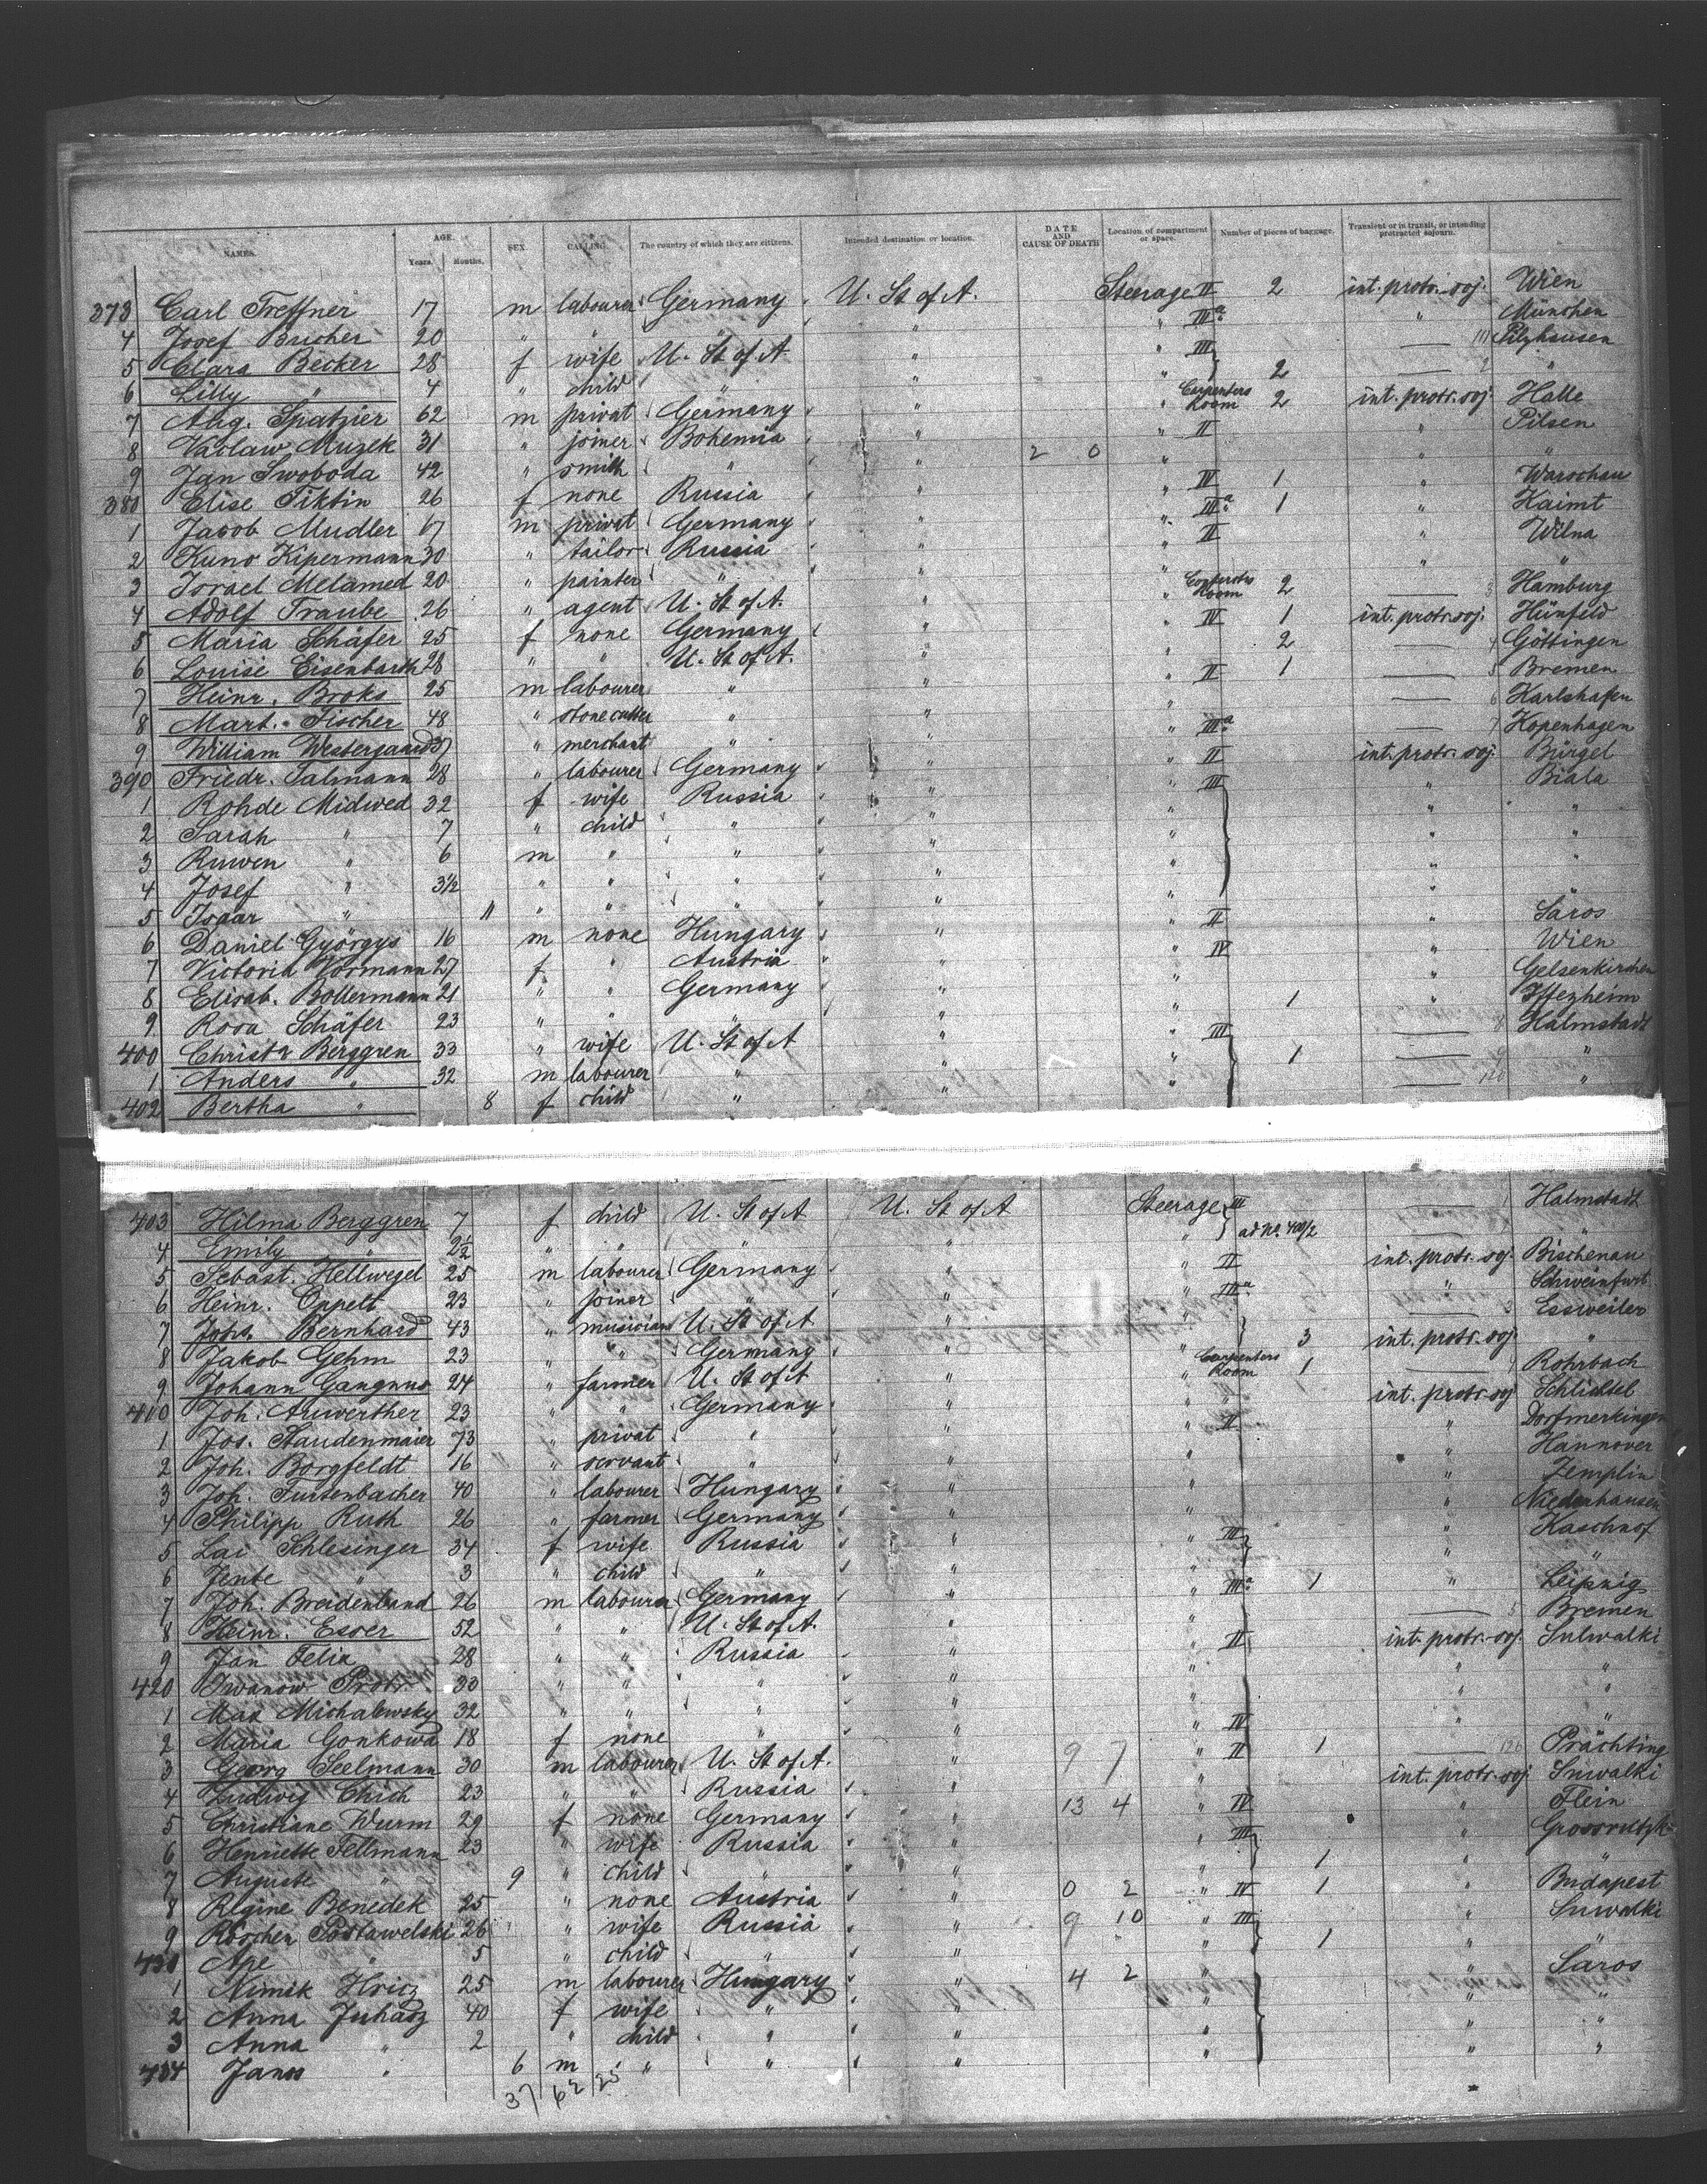 NAMES. AGE. Years. Months. SEX. CALLING. The country of which they are citizens. Intended destination or location. DATE AND CAUSE OF DEATH Location of compartment or space. Number of pieces of baggage. Transient or in transit, or intending protracted sojourn.
373 Carl Treffner 17 m labourer Germany U. St of A. Steerage II 2 int. protr. soj. Wien
4 Josef Bucher 20 " " " " " IIIa " München
5 Clara Becker 28 f wife U. St of A " " III — 111 Pilzhausen
6 Lilly " 4 " child " " " 2 — 2 "
7 Aug. Spatzier 62 m privat Germany " " Carpenters Room 2 int. protr. soj. Halle
8 Vaclaw Muzek 31 " joiner Bohemia " " II " Pilsen
9 Jan Swoboda 42 " smith " " 2 0 " " "
380 Elise Tiktin 26 f none Russia " " IV 1 " Warschau
1 Jacob Mudler 67 m privat Germany " " IIIa 1 " Kaimt
2 Kuno Kipermann 30 " tailor Russia " " II " Wilna
3 Israel Melamed 20 " painter " " " " "
4 Adolf Traube 26 " agent U. St of A. " " Carpenters Room 2 — 3 Hamburg
5 Maria Schäfer 25 f none Germany " " IV 1 int. protr. soj. Hünfeld
6 Louise Eisenbarth 28 " " U. St of A. " " 2 — 4 Göttingen
7 Heinr. Broks 25 m labourer " " " II 1 — 5 Bremen
8 Mart. Fischer 48 " stonecutter " " " — 6 Karlshafen
9 William Westergaard 37 " merchant " " " IIIa — 7 Kopenhagen
390 Friedr. Salmann 28 " labourer Germany " " II int. protr. soj. Bürgel
1 Rohde Midwed 32 f wife Russia " " III " Biala
2 Sarah " 7 " child " " " " "
3 Ruwen " 6 m " " " " " "
4 Josef " 3½ " " " " " " "
5 Isaar " 11 " " " " " " "
6 Daniel Györgys 16 m none Hungary " " II " Saros
7 Victoria Vormann 27 f " Austria " " IV " Wien
8 Elisab. Bollermann 21 " " Germany " " " Gelsenkirchen
9 Rosa Schäfer 23 " " " " " 1 " Iffezheim
400 Christ. Berggren 33 " wife U. St of A " " III — 8 Halmstadt
1 Anders " 32 m labourer " " " 1 — 9 "
402 Bertha " 8 f child " " " — 120 "
403 Hilma Berggren 7 f child U. St of A U. St of A Steerage III ad No. 400/2 — 1 Halmstadt
4 Emily " 2½ " " " " " "
5 Sebast. Hellwegel 25 m labourer Germany " " II int. protr. soj. Bischenau
6 Heinr. Oppelt 23 " joiner " " " IIIa " Schweinfurt
7 Johs. Bernhard 43 " musician U. St of A " " — 3 Essweiler
8 Jakob Gehm 23 " " Germany " " 3 int. protr. soj. "
9 Johann Gangnus 24 " farmer U. St of A " " Carpenters Room 1 — 4 Rohrbach
410 Joh. Auwerther 23 " " Germany " " int. protr. soj. Schlichtel
1 Jos. Staudenmaier 73 " privat " " " II " Dorfmerkingen
2 Joh. Borgfeldt 16 " servant " " " " Hannover
3 Joh. Furtenbacher 40 " labourer Hungary " " " Zemplin
4 Philipp Ruth 26 " farmer Germany " " " Niedernhausen
5 Lai Schlesinger 34 f wife Russia " " III " Kaschnof
6 Jente " 3 " child " " " " "
7 Joh. Breidenband 26 m labourer Germany " " IIIa 1 " Leipzig
8 Heinr. Esser 52 " " U. St of A. " " — 5 Bremen
9 Jan Felia 28 " " Russia " " II int. protr. soj. Sulwalki
420 Iwanow Protr. 33 " " " " " " "
1 Max Michalewsky 32 " " " " " " "
2 Maria Gonkowa 18 f none " " " IV " "
3 Georg Seelmann 30 m labourer U. St of A. " 9 7 " II 1 — 126 Prächting
4 Ludwig Chich 23 " " Russia " " int. protr. soj. Suwalki
5 Christiane Wurm 29 f none Germany " 13 4 " IV " Flein
6 Henriette Fellmann 23 " wife Russia " " III "
7 Auguste " 9 " child " " " 1 " "
8 Regine Benedek 25 " none Austria " 0 2 " IV 1 " Budapest
9 Röschen Postawelski 26 " wife Russia " 9 10 " III " Suwalki
430 Ape " 5 " child " " " 1 " "
1 Nimik Hricz 25 m labourer Hungary " 4 2 " " Saros
2 Anna Juhasz 40 f wife " " " " "
3 Anna " 2 " child " " " " "
434 Janos " 6 m " " " " " "
37 62 25